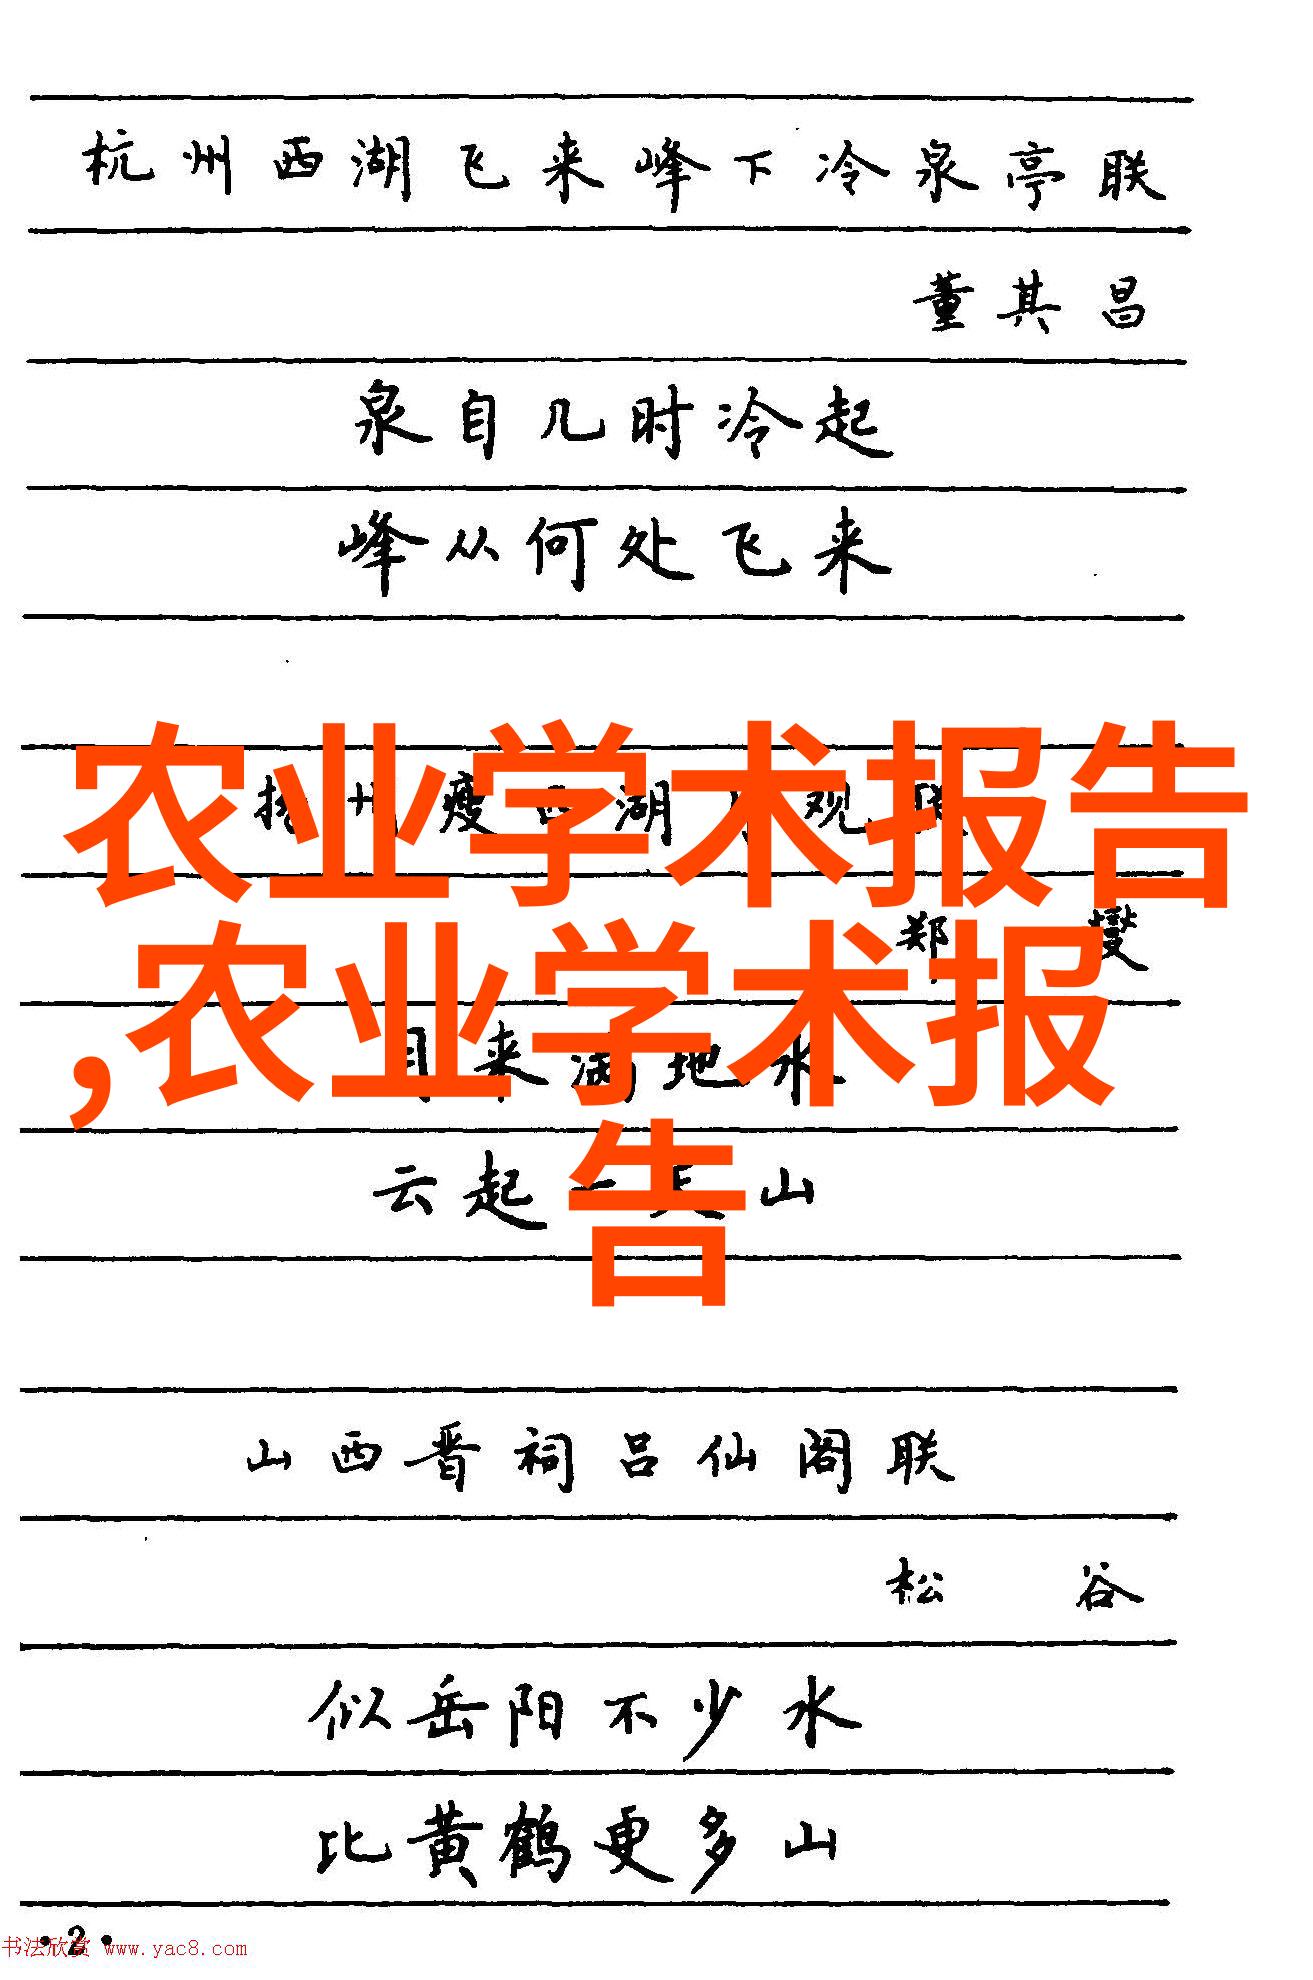 杭州西湖飞来峰下冷泉亭联
董其昌
泉自几时冷起
峰从何处飞来
农业学术报告
瘦西湖 观
,农业学术报
郑燮
月来满地水
告
云起一天山
山西晋祠吕仙阁联
松谷
似岳阳不少水
比黄鹤更多山
·2·
书法欣赏 www.yac8.com